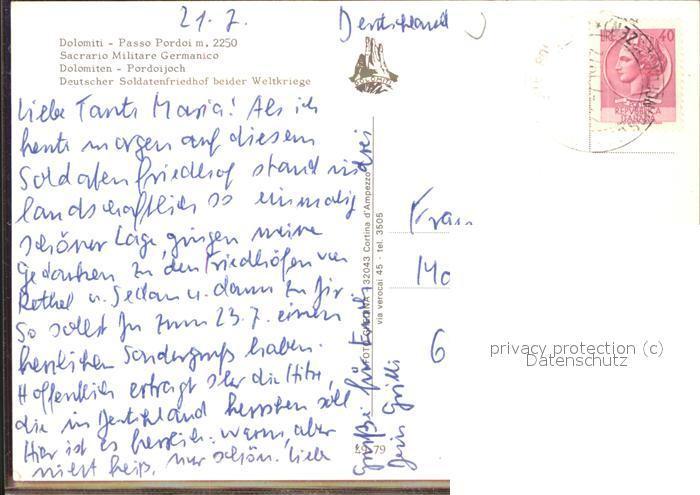 21. 7.
Deutschland
Dolomiti - Passo Pordoi m. 2250
Sacrario Militare Germanico
Dolomiten - Pordoijoch
Deutscher Soldatenfriedhof beider Weltkriege
DOLOMITI
LIRE 40
REPUBBLICA
ITALIANA
Liebe Tante Maria! Als ich
heute morgen auf diesem
Soldatenfriedhof stand in
landschaftlich so einmalig
schöner Lage, gingen meine
Gedanken zu den Friedhöfen von
Rethel u. Sedan u. dann zu Dir.
So sollst Du zum 23.7. einen
herzlichen Sondergruß haben.
Hoffentlich ertragt Ihr die Hitze,
die in Deutschland herrschen soll.
Hier ist es herrlich: warm, aber
nicht heiß, nur schön. Liebe
Grüße für Euch drei
32043 Cortina d'Ampezzo
via verocai 45 - tel. 3505
49-79
Frau
Mo
6
privacy protection (c)
Datenschutz